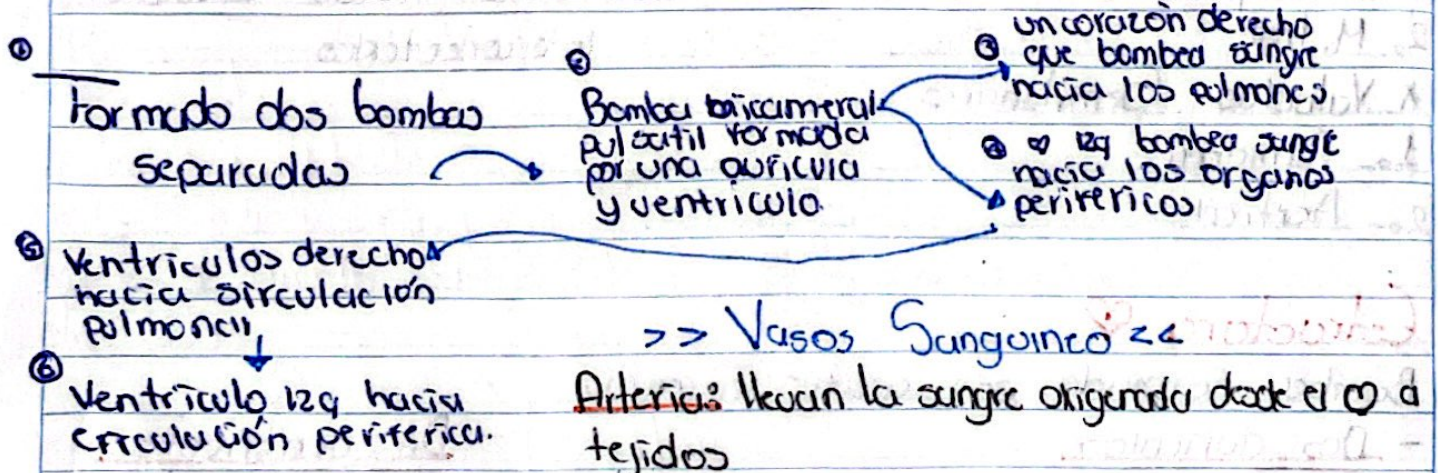 ①
Formado dos bombas
separadas
②
Bomba bicameral
pulsatil formada
por una auricula
y ventriculo
③ un corazón derecho
que bombea sangre
hacia los pulmones
④ ♡ izq bombea sangre
hacia los organos
perifericos
⑤ Ventriculos derecho
hacia sirculación
pulmonar
⑥ Ventriculo izq hacia
circulación periferica.
>> Vasos Sanguineo <<
Arteria: llevan la sangre oxigenada desde el ♡ a
tejidos